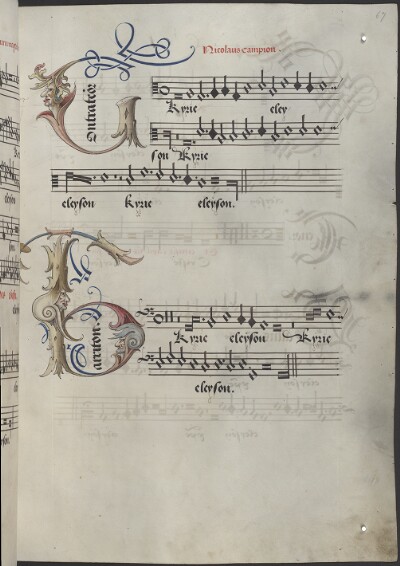 67
Nicolaus campion.
Contratenor
Kyrie eley
son Kyrie
eleyson Kyrie eleyson.
Bariton.
Kyrie eleyson Kyrie
eleyson.